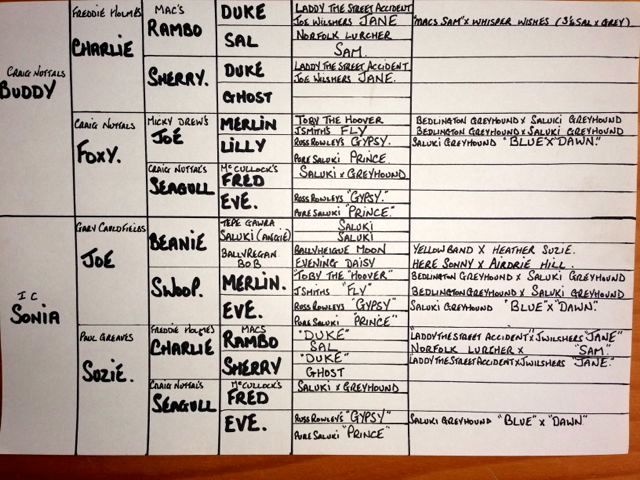 CRAIG NUTTALS
BUDDY
FREDDIE HOLMES
CHARLIE
MAC'S
RAMBO
DUKE
LADDY THE STREET ACCIDENT
JOE WILSHERS JANE
"MACS SAM" X WHISPER WISHES (3/4 SAL X GREY)
SAL
NORFOLK LURCHER
SAM.
SHERRY.
DUKE
LADDY THE STREET ACCIDENT
JOE WILSHERS JANE.
GHOST
CRAIG NUTTALS
FOXY.
MICKY DREW'S
JOE
MERLIN
TOBY THE HOOVER
BEDLINGTON GREYHOUND X SALUKI GREYHOUND
JSMITHS FLY
BEDLINGTON GREYHOUND X SALUKI GREYHOUND
LILLY
ROSS ROWLEYS GYPSY.
SALUKI GREYHOUND "BLUE" X "DAWN."
PURE SALUKI PRINCE.
CRAIG NUTTAL'S
SEAGULL
McCULLOCK'S
FRED
SALUKI X GREYHOUND
EVE.
ROSS ROWLEYS "GYPSY."
PURE SALUKI "PRINCE."
I C
SONIA
GARY CAULDFIELDS
JOE
BEANIE
TEPE GAWRA
SALUKI (ANGIE)
SALUKI
SALUKI
BALLYREGAN
BOB
BALLYHEIGUE MOON
YELLOW BAND X HEATHER SUZIE.
EVENING DAISY
HERE SONNY X AIRDRIE HILL.
SWOOP.
MERLIN.
"TOBY THE "HOOVER"
BEDLINGTON GREYHOUND X SALUKI GREYHOUND
JSMITHS "FLY"
BEDLINGTON GREYHOUND X SALUKI GREYHOUND
EVE.
ROSS ROWLEYS "GYPSY"
SALUKI GREYHOUND "BLUE" X "DAWN".
PURE SALUKI "PRINCE"
PAUL GREAVES
SUZIE.
FREDDIE HOLMES
CHARLIE
MACS
RAMBO
"DUKE"
"LADDY THE STREET ACCIDENT X JWILSHERS "JANE"
SAL
NORFOLK LURCHER X "SAM.
SHERRY
"DUKE"
"LADDY THE STREET ACCIDENT X JWILSHERS "JANE.
GHOST
CRAIG NUTTAL'S
SEAGULL
McCULLOCK'S
FRED
SALUKI X GREYHOUND
EVE.
ROSS ROWLEY'S "GYPSY"
SALUKI GREYHOUND "BLUE" X "DAWN"
PURE SALUKI "PRINCE"